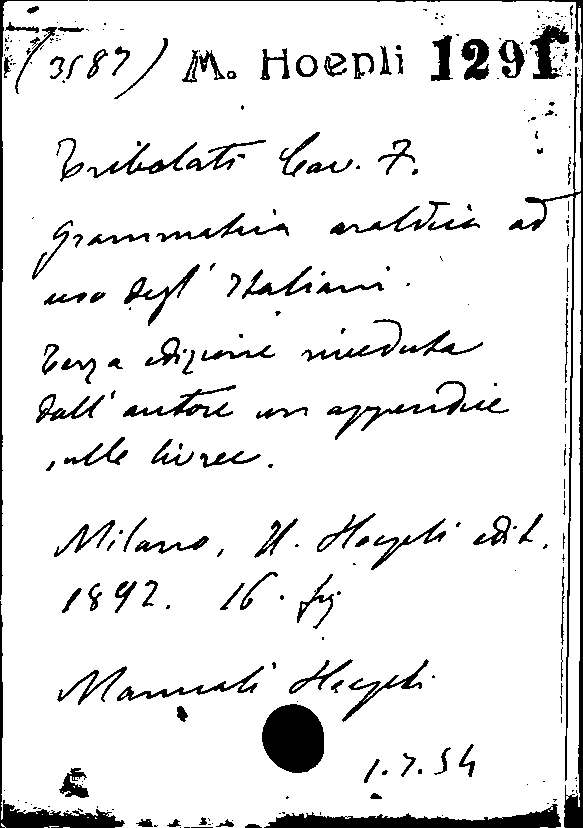 (3587) M. Hoepli 1291
Tribolati Cav. F.
Grammatica araldica ad
uso degl' Italiani.
Terza edizione riveduta
dall' autore con appendice
sulle livree.
Milano, U. Hoepli edit.
1892. 16. fig
Manuali Hoepli
1.7.54